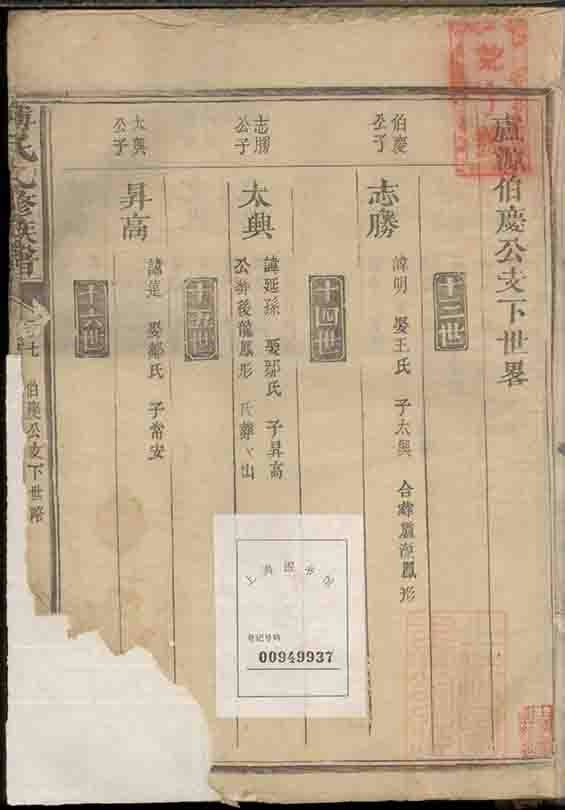 盧源伯慶公支下世畧
十三世
伯慶公子
志勝
諱明 娶王氏 子太興 合葬盧源鳳形
十四世
志勝公子
太興
諱延孫 娶鄒氏 子昇高
公葬後龍鳳形 氏葬
十五世
太興公子
昇高
娶鄒氏 子常安
十六世
氏 修族譜
伯慶公支下世略
登记号码
00949937